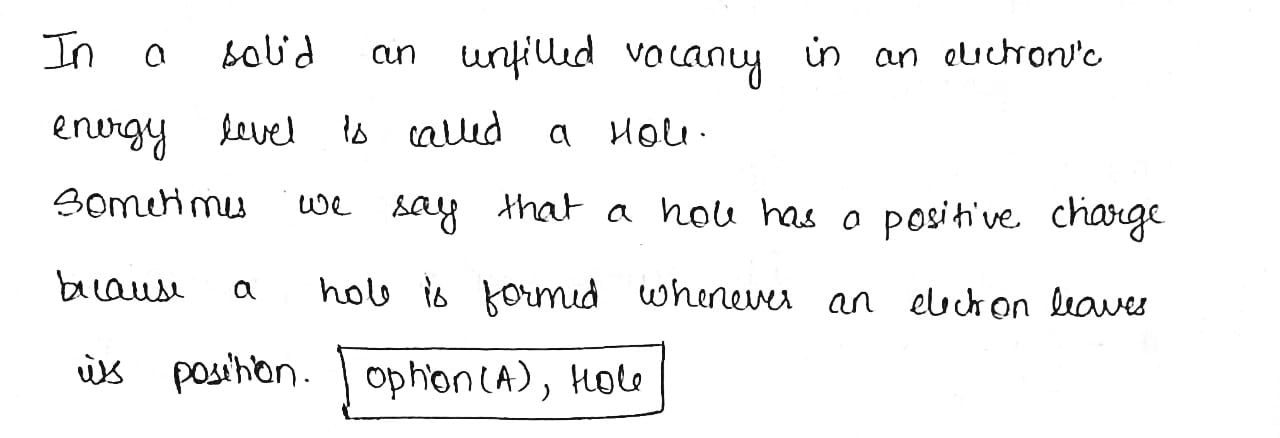 In a solid an unfilled vacancy in an electronic
energy level is called a Hole.
Sometimes we say that a hole has a positive charge
because a hole is formed whenever an electron leaves
its position. option(A), Hole